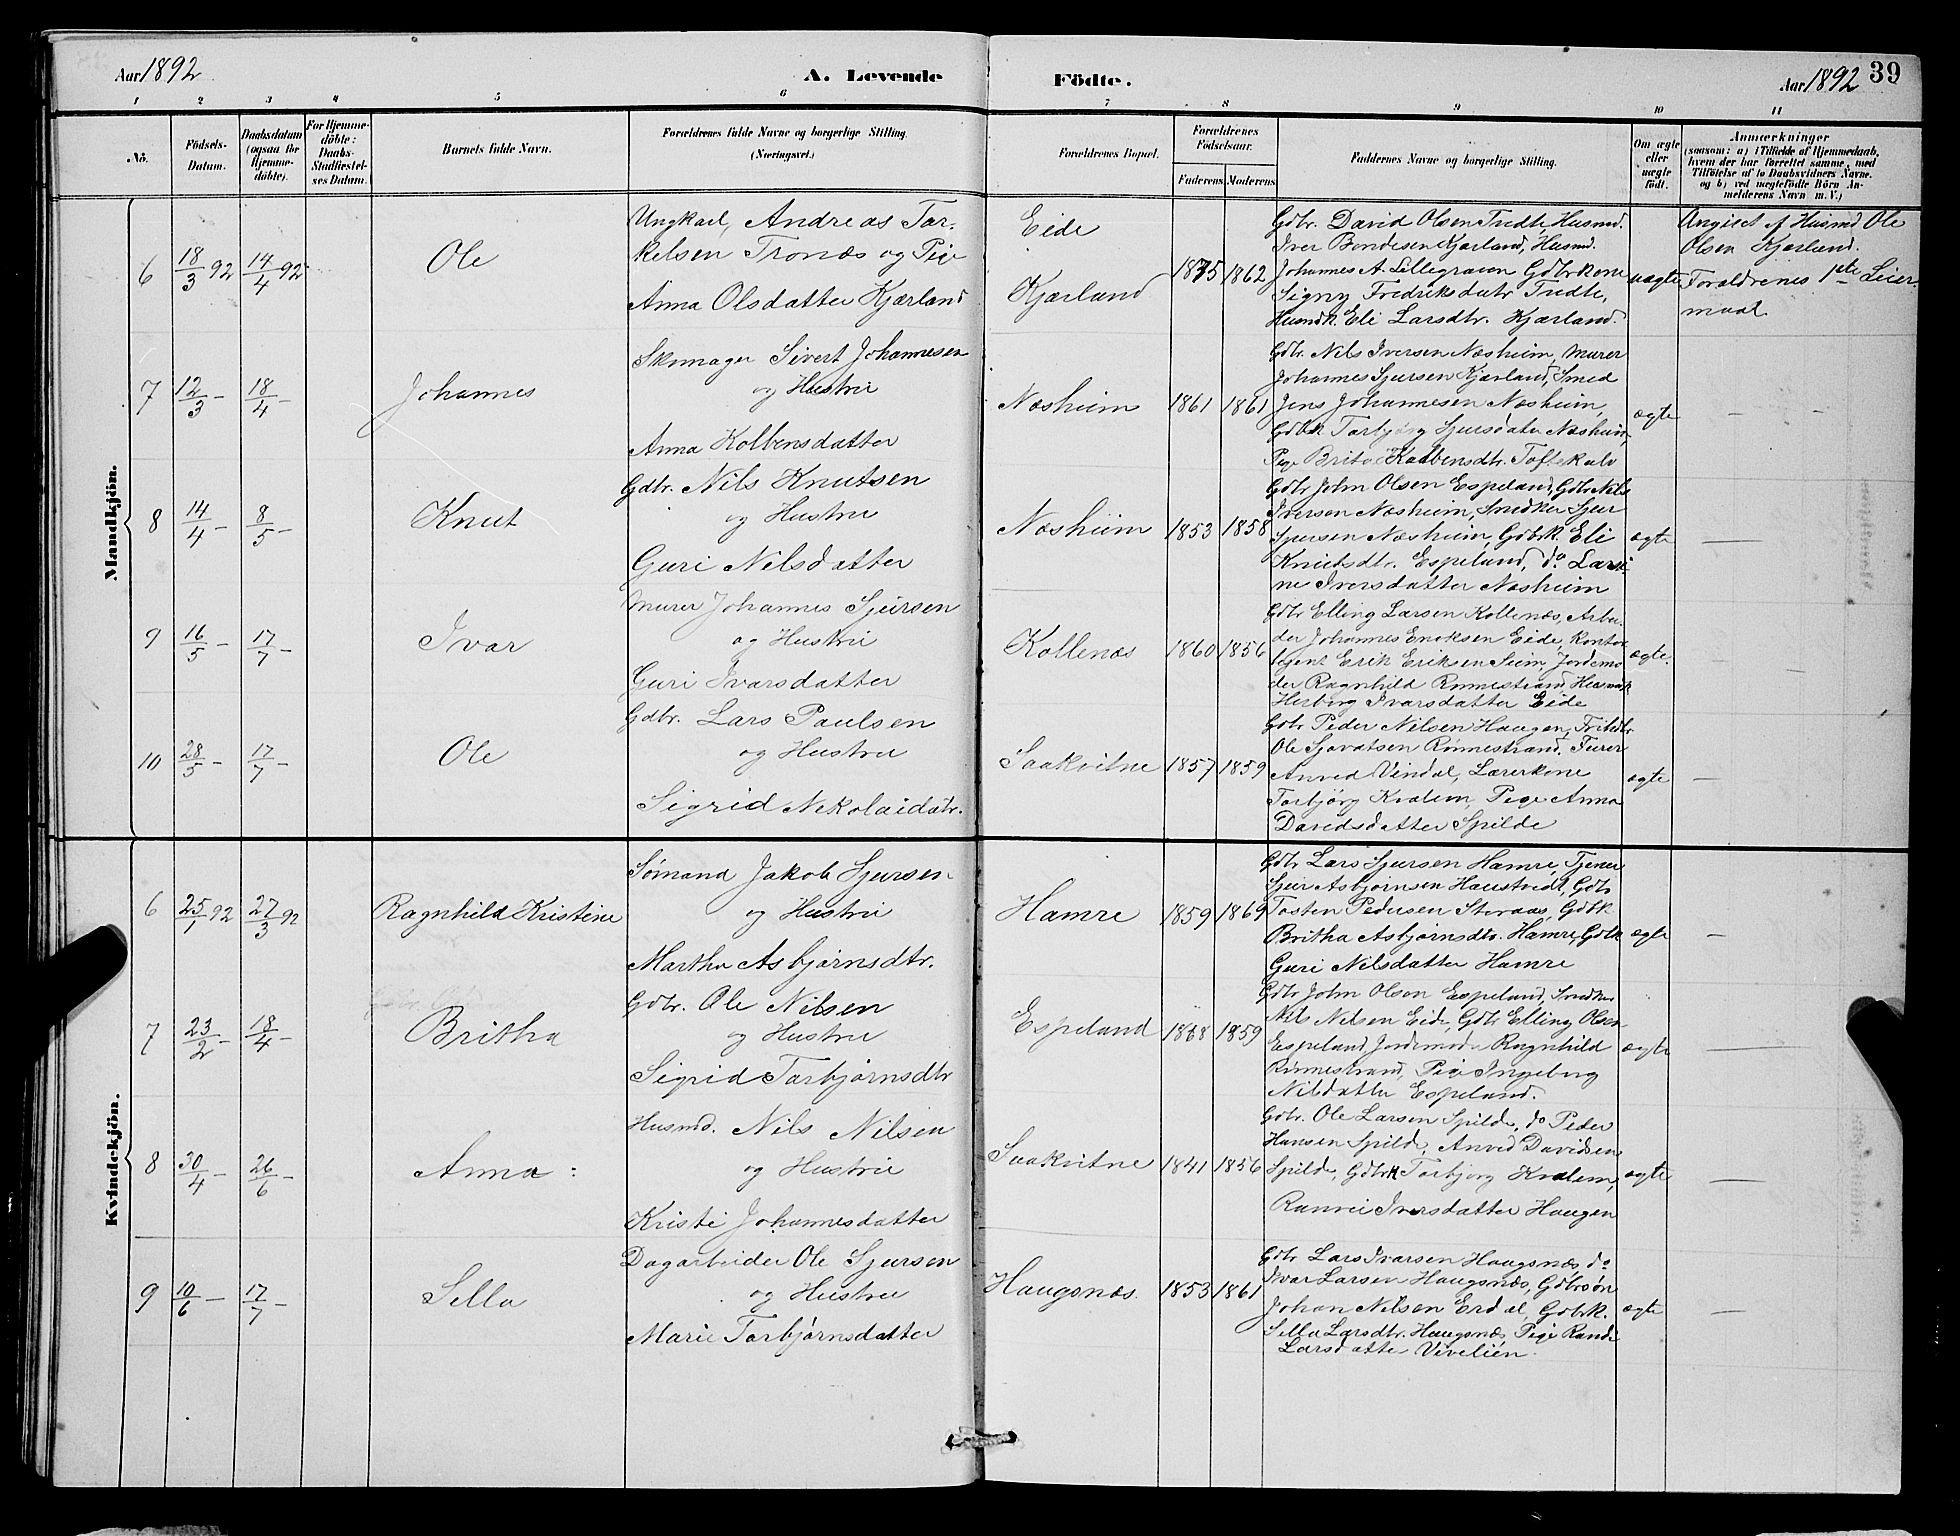 Aar 1892
A. Levende
Födte.
Aar 1892
39
1 2 3 4 5 6 7 8 9 10 11
No.
Födsels-Datum.
Daabsdatum (ogsaa for Hjemme-döbte).
For Hjemme-döbte: Daabs-Stadfæstel-ses Datum.
Barnets fulde Navn.
Forældrenes fulde Navne og borgerlige Stilling. (Næringsvei.)
Forældrenes Bopæl.
Forældrenes Födselsaar.
Faderens Moderens
Faddernes Navne og borgerlige Stilling.
Om ægte eller uægte födt.
Anmærkninger
(saasom: a) i Tilfælde af Hjemmedaab,
hvem der har forrettet samme, med
Tilföielse af to Daabsvidners Navne.
og b) ved uægtefödte Börn An-
melderens Navn m. V.)
Mandkjön.
6 18/3 92 14/4 92
Ole
Ungkarl, Andreas Tor-
kelsen Tronæs og Pige
Anna Olsdatter Kjærland
Eide
Kjærland
1875 1862
Gdbr. David Olsen Tredte Husmd.
Iver Bendesen Kjærland, Husmd.
Johannes A. Lillegraven Gdbrkone
Signy Fredriksdatr Tredte,
Husmdk. Eli Larsdtr. Kjærland.
uægte
Angivet af Husmd Ole
Olsen Kjærland.
Forældrenes 1ste Leier-
maal
7 12/3 – 18/4 –
Johannes
Skomager Sivert Johannesen
og Hustru
Anna Kolbensdatter
Næsheim
1861 1861
Gdbr. Nils Iversen Næsheim, Murer
Johannes Sjursen Kjærland, Smed
Jens Johannesen Næsheim,
Gdbk Torbjörg Sjursdatr Næsheim,
Pige Brita Kolbensdtr. Toftekalv
ægte
– –
8 14/4 – 8/5 –
Knut
Gdbr. Nils Knutsen
og Hustru
Guri Nilsdatter
Næsheim
1853 1858
Gdbr John Olsen Espeland, Gdbr Nils
Iversen Næsheim, Snedker Sjur
Sjursen Næsheim, Gdbrk. Eli
Knutsdtr. Espeland, do Larsi
ne Iversdatter Næsheim
ægte
–
9 16/5 – 17/7 –
Ivar
Murer Johannes Sjursen
og Hustru
Guri Ivarsdatter
Kollenæs
1860 1856
Gdbr Elling Larsen Kollenæs, Arbei-
der Johannes Enoksen Eide, Kontor
Erik Eriksen Seim, Jordemo
der Ragnhild Rönnestrand,
Herborg Ivarsdatter Eide
ægte.
–
10 28/5 – 17/7 –
Ole
Gdbr. Lars Paulsen
og Hustru
Sigrid Nikolaidatr.
Saakvitne
1857 1859
Gdbr Peder Nilsen Haugen,
Ole Sjovatsen Rönnestrand, Furer
Anved Vindal, Lærerkone
Torbjörg Kvalem, Pige Anna
Davidsdatter Spilde
ægte
–
Kvindekjön.
6 25/1 92 27/3 92
Ragnhild Kristine
Sömand Jakob Sjursen
og Hustru
Martha Asbjörnsdtr.
Hamre
1859 1869
Gdbr Lars Sjursen Hamre, Tjener
Sjur Asbjörnsen Haustvedt, Gdbr
Tosten Pedersen Storaas, Gdbk
Britha Asbjörnsdtr. Hamre, Gdbk
Guri Nilsdatter Hamre
ægte
–
7 23/2 – 18/4 –
Britha
Gdbr. Ole Nilsen
og Hustru
Sigrid Torbjörnsdtr
Espeland
1868 1859
Gdbr John Olsen Espeland, Snedker
Nils Nilsen Eide, Gdbr Elling Olsen
Espeland Jordemodr Ragnhild
Rönnestrand, Pige Ingeborg
Nilsdatter Espeland.
ægte
–
8 30/4 – 26/6 –
Anna
Husmd. Nils Nilsen
og Hustru
Kristi Johannesdatter
Saakvitne
1841 1856
Gdbr. Ole Larsen Spilde, do Peder
Hansen Spilde, Anved Davidsen
Spilde, Gdbrk Torbjörg Kvalem,
Ranvei Iversdatter Haugen
ægte
–
9 10/6 – 17/7 –
Sella
Dagarbeider Ole Sjursen
og Hustru
Marie Torbjörnsdatter
Haugsnæs.
1853 1861
Gdbr Lars Ivarsen Haugsnæs, do
Ivar Larsen Haugsnæs, Gdbrsön
Johan Nilsen Erdal, Gdbrk.
Sella Larsdtr. Haugsnæs, Pige Randi
Larsdatter Vivelien.
ægte
–